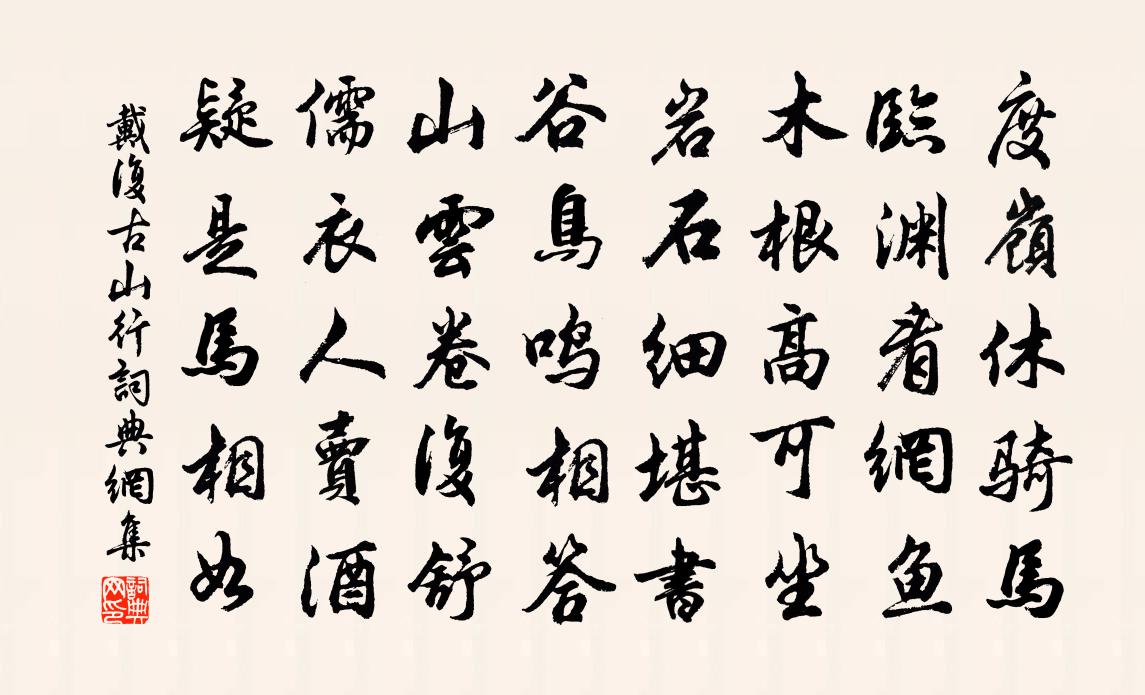 度嶺休骑馬
臨渊看網鱼
木根高可坐
岩石细堪書
谷鳥鸣相答
山雲卷復舒
儒衣人賣酒
疑是馬相如
戴復古山行詞典網集
詞典网印